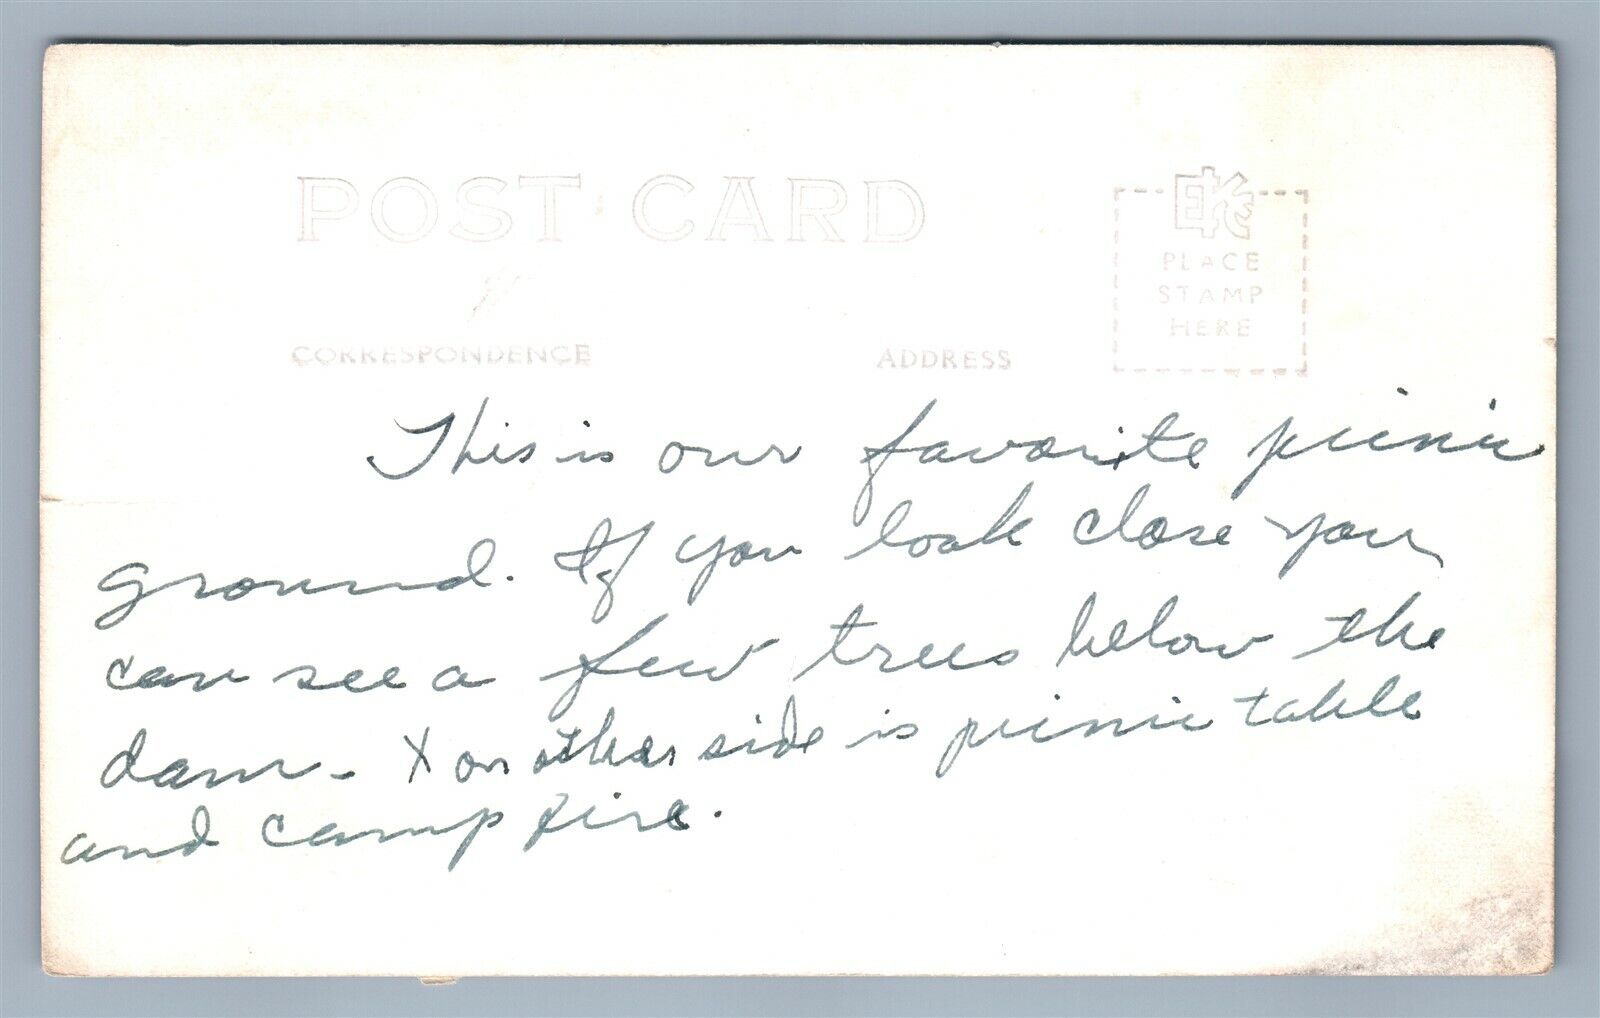 POST CARD
EKC
PLACE
STAMP
HERE
CORRESPONDENCE
ADDRESS
This is our favorite picnic
ground. If you look close you
can see a few trees below the
dam - X on other side is picnic table
and camp fire.